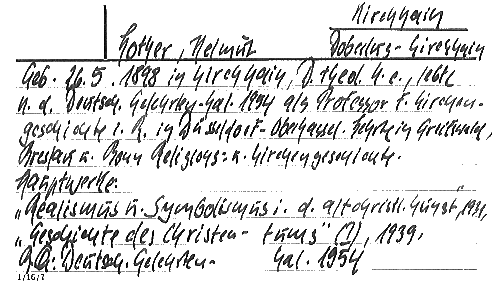 Kirchhain
Lother, Helmut Doberlug-Kirchhain
Geb. 26.5.1898 in Kirchhain, D. theol. h.c., lebte
n. d. Deutsch. Gelehrten-Kal. 1954 als Professor f. Kirchen-
geschichte i. R. in Düsseldorf-Oberkassel. Lehrte in Greifswald,
Breslau u. Bonn Religions- u. Kirchengeschichte.
Hauptwerke:
"Realismus u. Symbolismus i. d. altchristl. Kunst", 1931,
"Geschichte des Christen- tums" (I), 1939.
Qu: Deutsch. Gelehrten- Kal. 1954
1/16/7